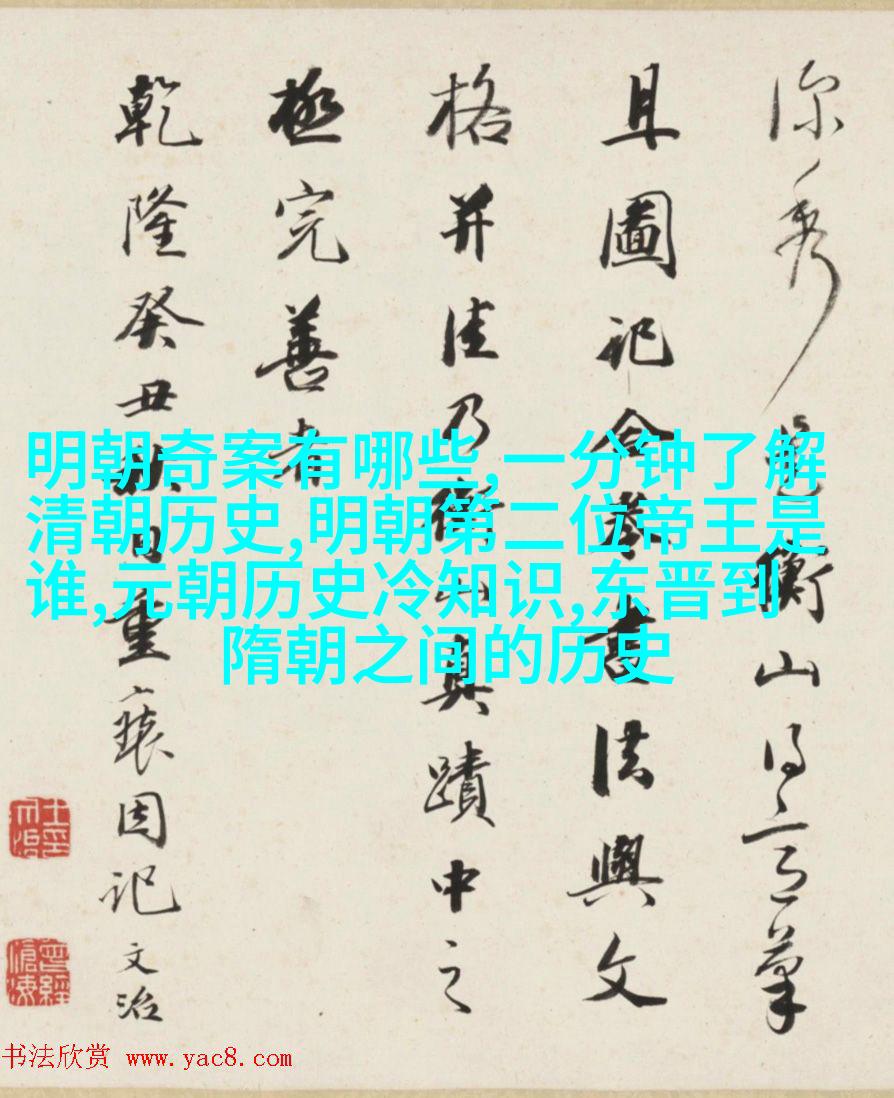 深秀衡山得意筆
且圖記書法與文
格并佳乃衡山真蹟中之
極完善者
乾隆癸丑秋日重裝因記 文治
曾經滄海
明朝奇案有哪些,一分钟了解
清朝历史,明朝第二位帝王是
谁,元朝历史冷知识,东晋到
隋朝之间的历史
书法欣赏 www.yac8.com